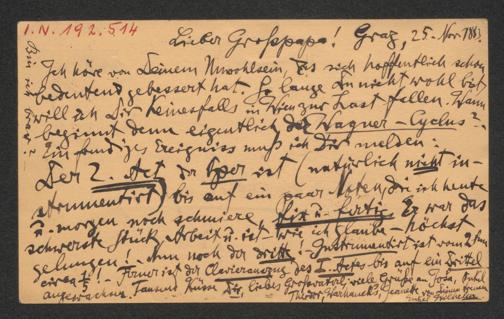 I.N. 192.514
Lieber Grosspapa! Graz, 25. Nov.
Ich höre von Deinem Unwohlsein, das sich hoffentlich schon
bedeutend gebessert hat. So lange Du nicht wohl bist
will ich Dir keinesfalls in Wien zur Last fallen. Wann
beginnt denn eigentlich der Wagner-Cyclus?
Ein freudiges Ereigniss muß ich Dir melden:
Der 2. Act der Oper ist (natürlich nicht in-
strumentirt) bis auf ein paar Noten, die ich heute
u. morgen noch schmiere fix u. fertig. Es war das
schwerste Stück Arbeit u. ist – wie ich glaube – höchst
gelungen! Nun noch der dritte! Instrumentirt ist vom 2ten
circa 1/5! – Ferner ist der Clavierauszug des I. Actes bis auf ein Drittel
angewachsen. Tausend Küsse Dir, liebes Grossvaterl, viele Grüße an
Theodor, Jeanette von Deinem treuen
Enkel